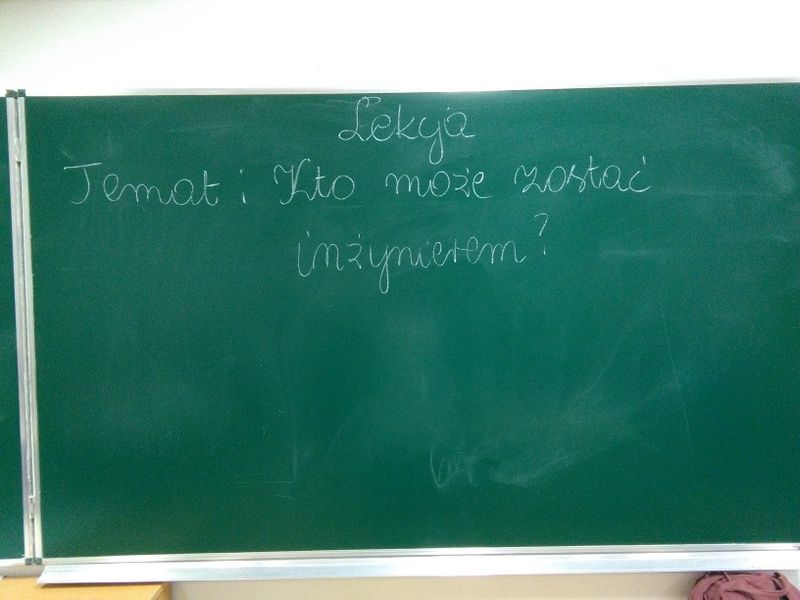 Lekcja
Temat: Kto może zostać
inżynierem?